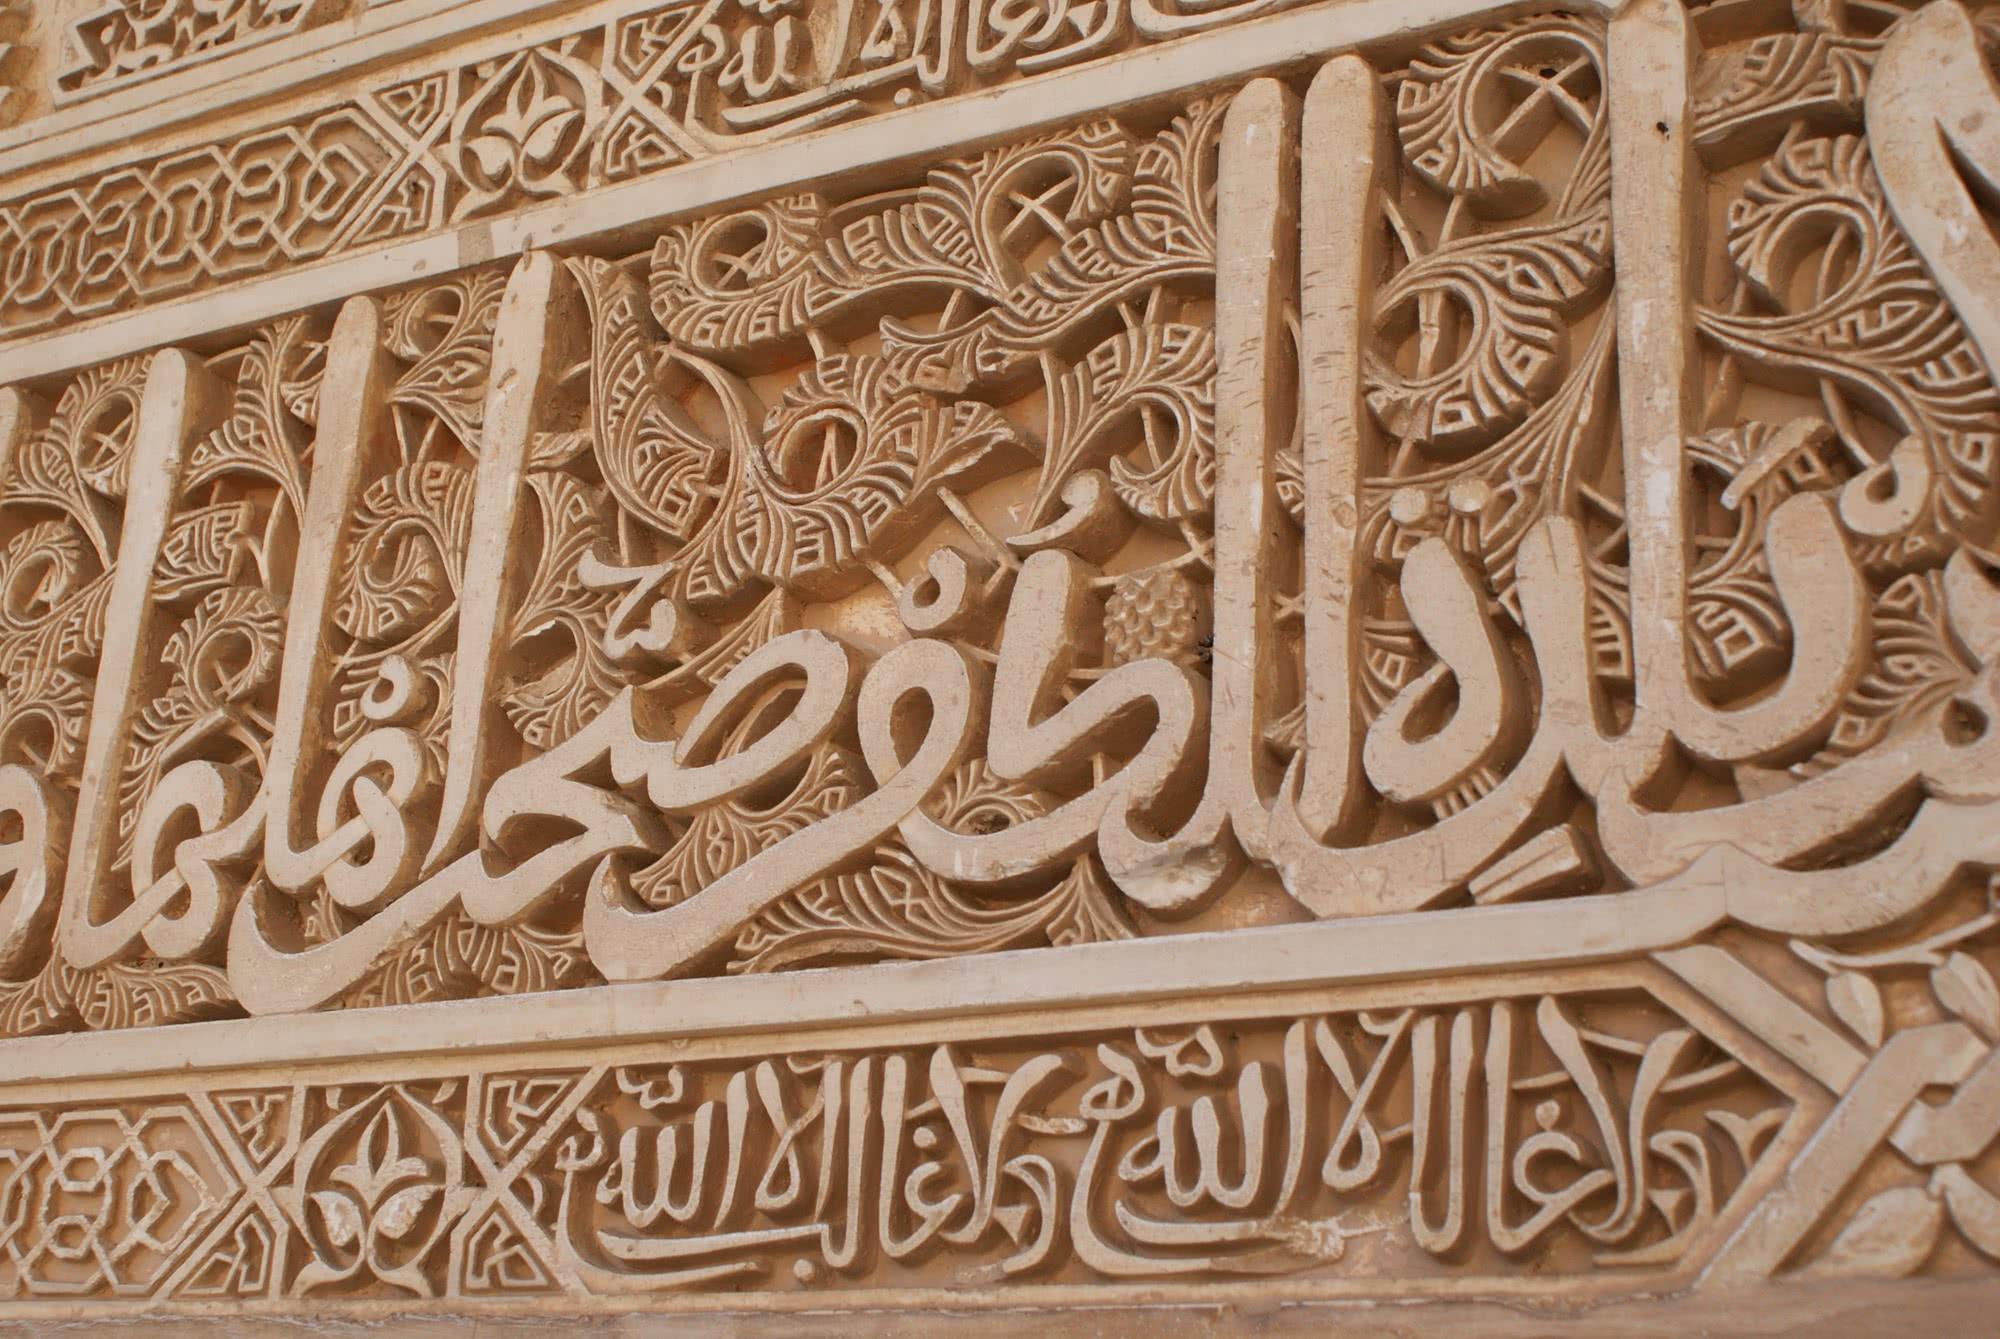 ولا غالب الا الله
بلدة للكفر صبحت اهلها
ولا غالب الا الله ولا غالب الا الله